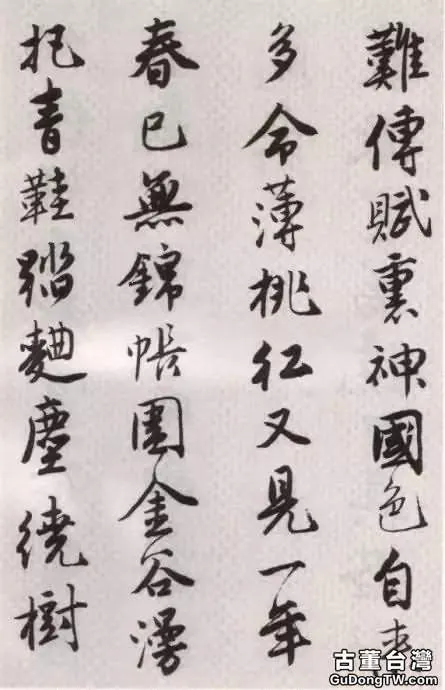 難傳賦裏神國色自来
多命薄桃紅又見一年
春已無錦帳圍金谷漫
把青鞋踏麴塵繞樹
古董台灣
GuDongTW.com